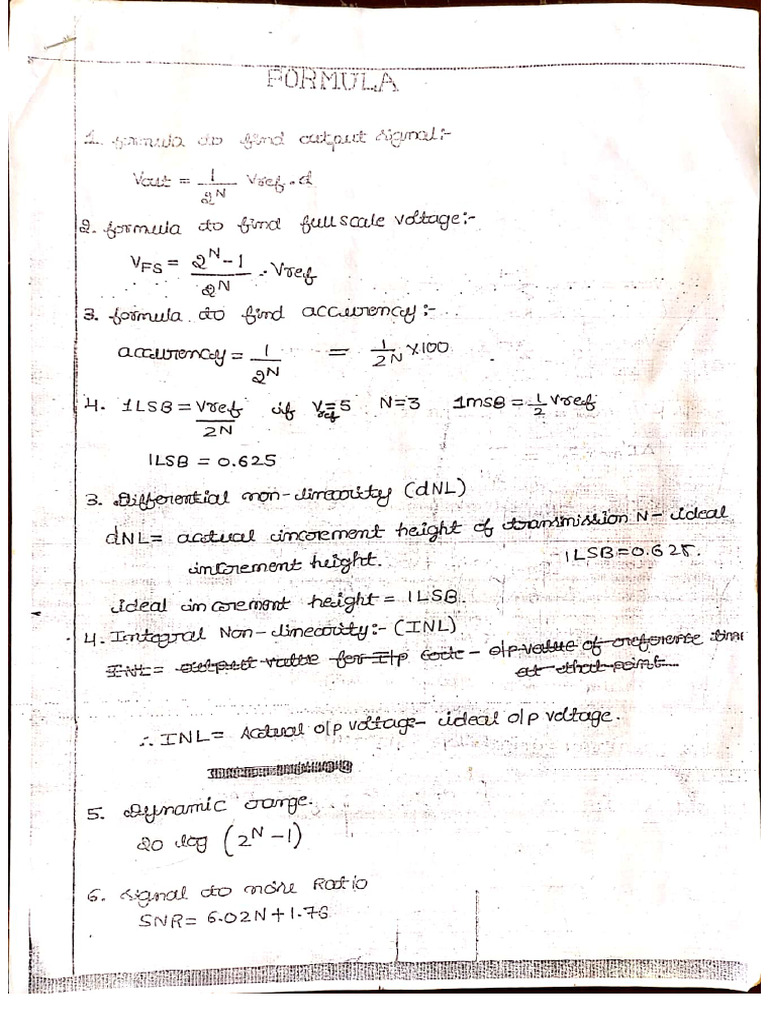 FORMULA
1. formula to find output signal:-
Vout = 1/2^N Vref . d
2. formula to find fullscale voltage:-
VFS = (2^N - 1)/2^N . Vref
3. formula to find accurency:-
accurency = 1/2^N = 1/2N × 100
4. 1LSB = Vref/2N if Vref = 5 N=3 1MSB = 1/2 Vref
1LSB = 0.625
3. Differential non-linearity (dNL)
dNL = actual increment height of transmission N - ideal
increment height. 1LSB = 0.625.
ideal increment height = 1LSB.
4. Integral Non-linearity:- (INL)
INL = output value for I/p code - o/p value of reference line
at that point...
∴ INL = Actual o/p voltage - ideal o/p voltage.
5. Dynamic range.
20 log (2^N - 1)
6. signal to noise Ratio
SNR = 6.02N + 1.76